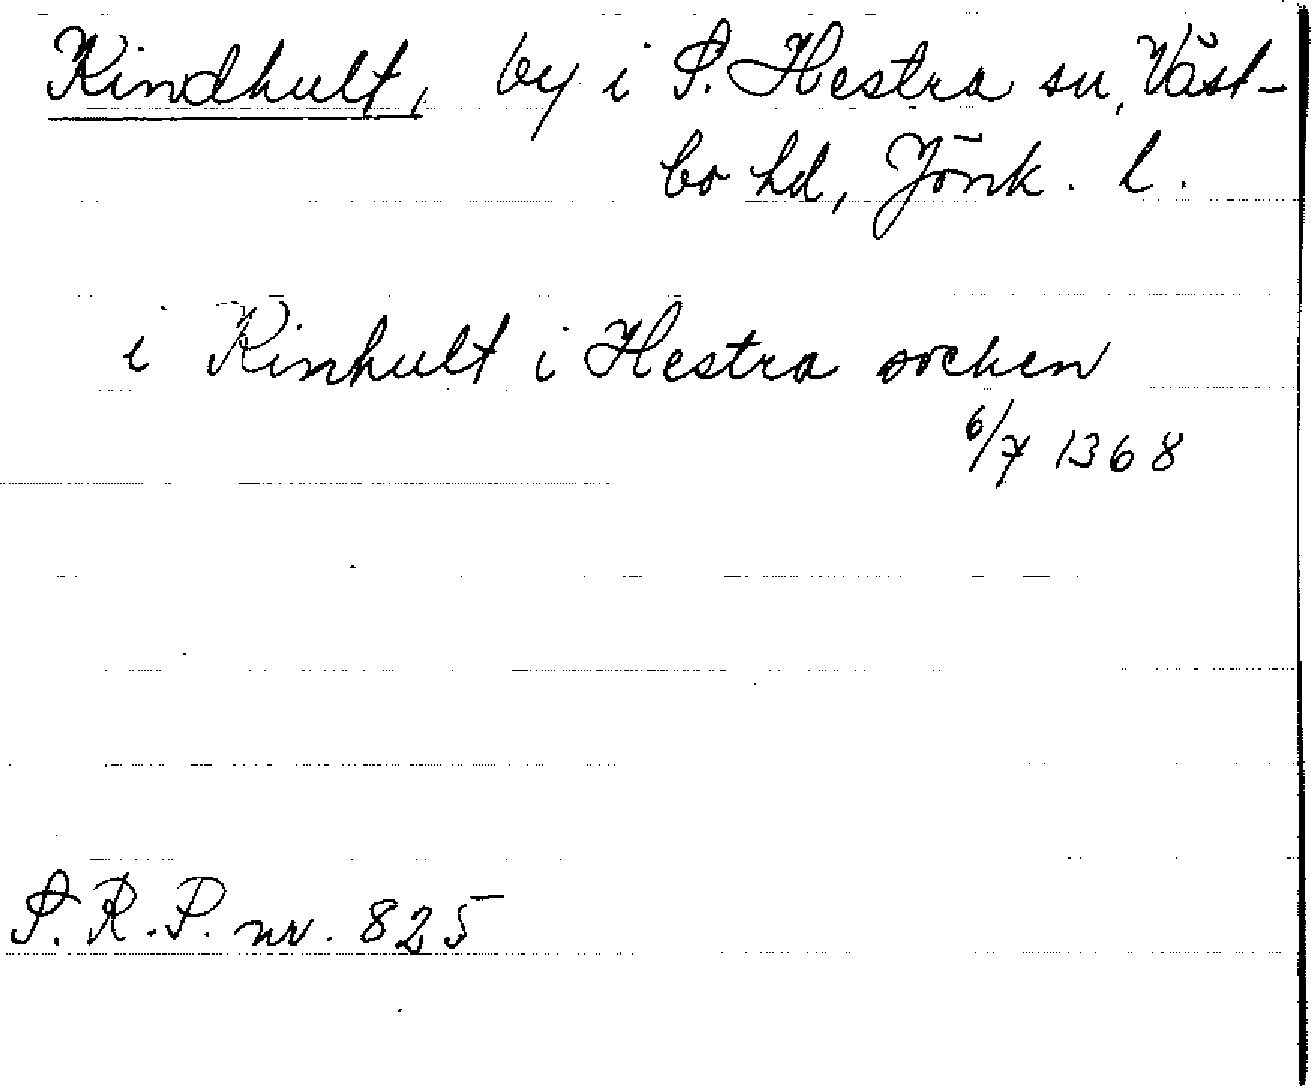 Kindhult, by i S. Hestra sn, Väst-
bo hd, Jönk. l.
i Kinhult i Hestra socken
6/7 1368
S. R. P. nr. 825